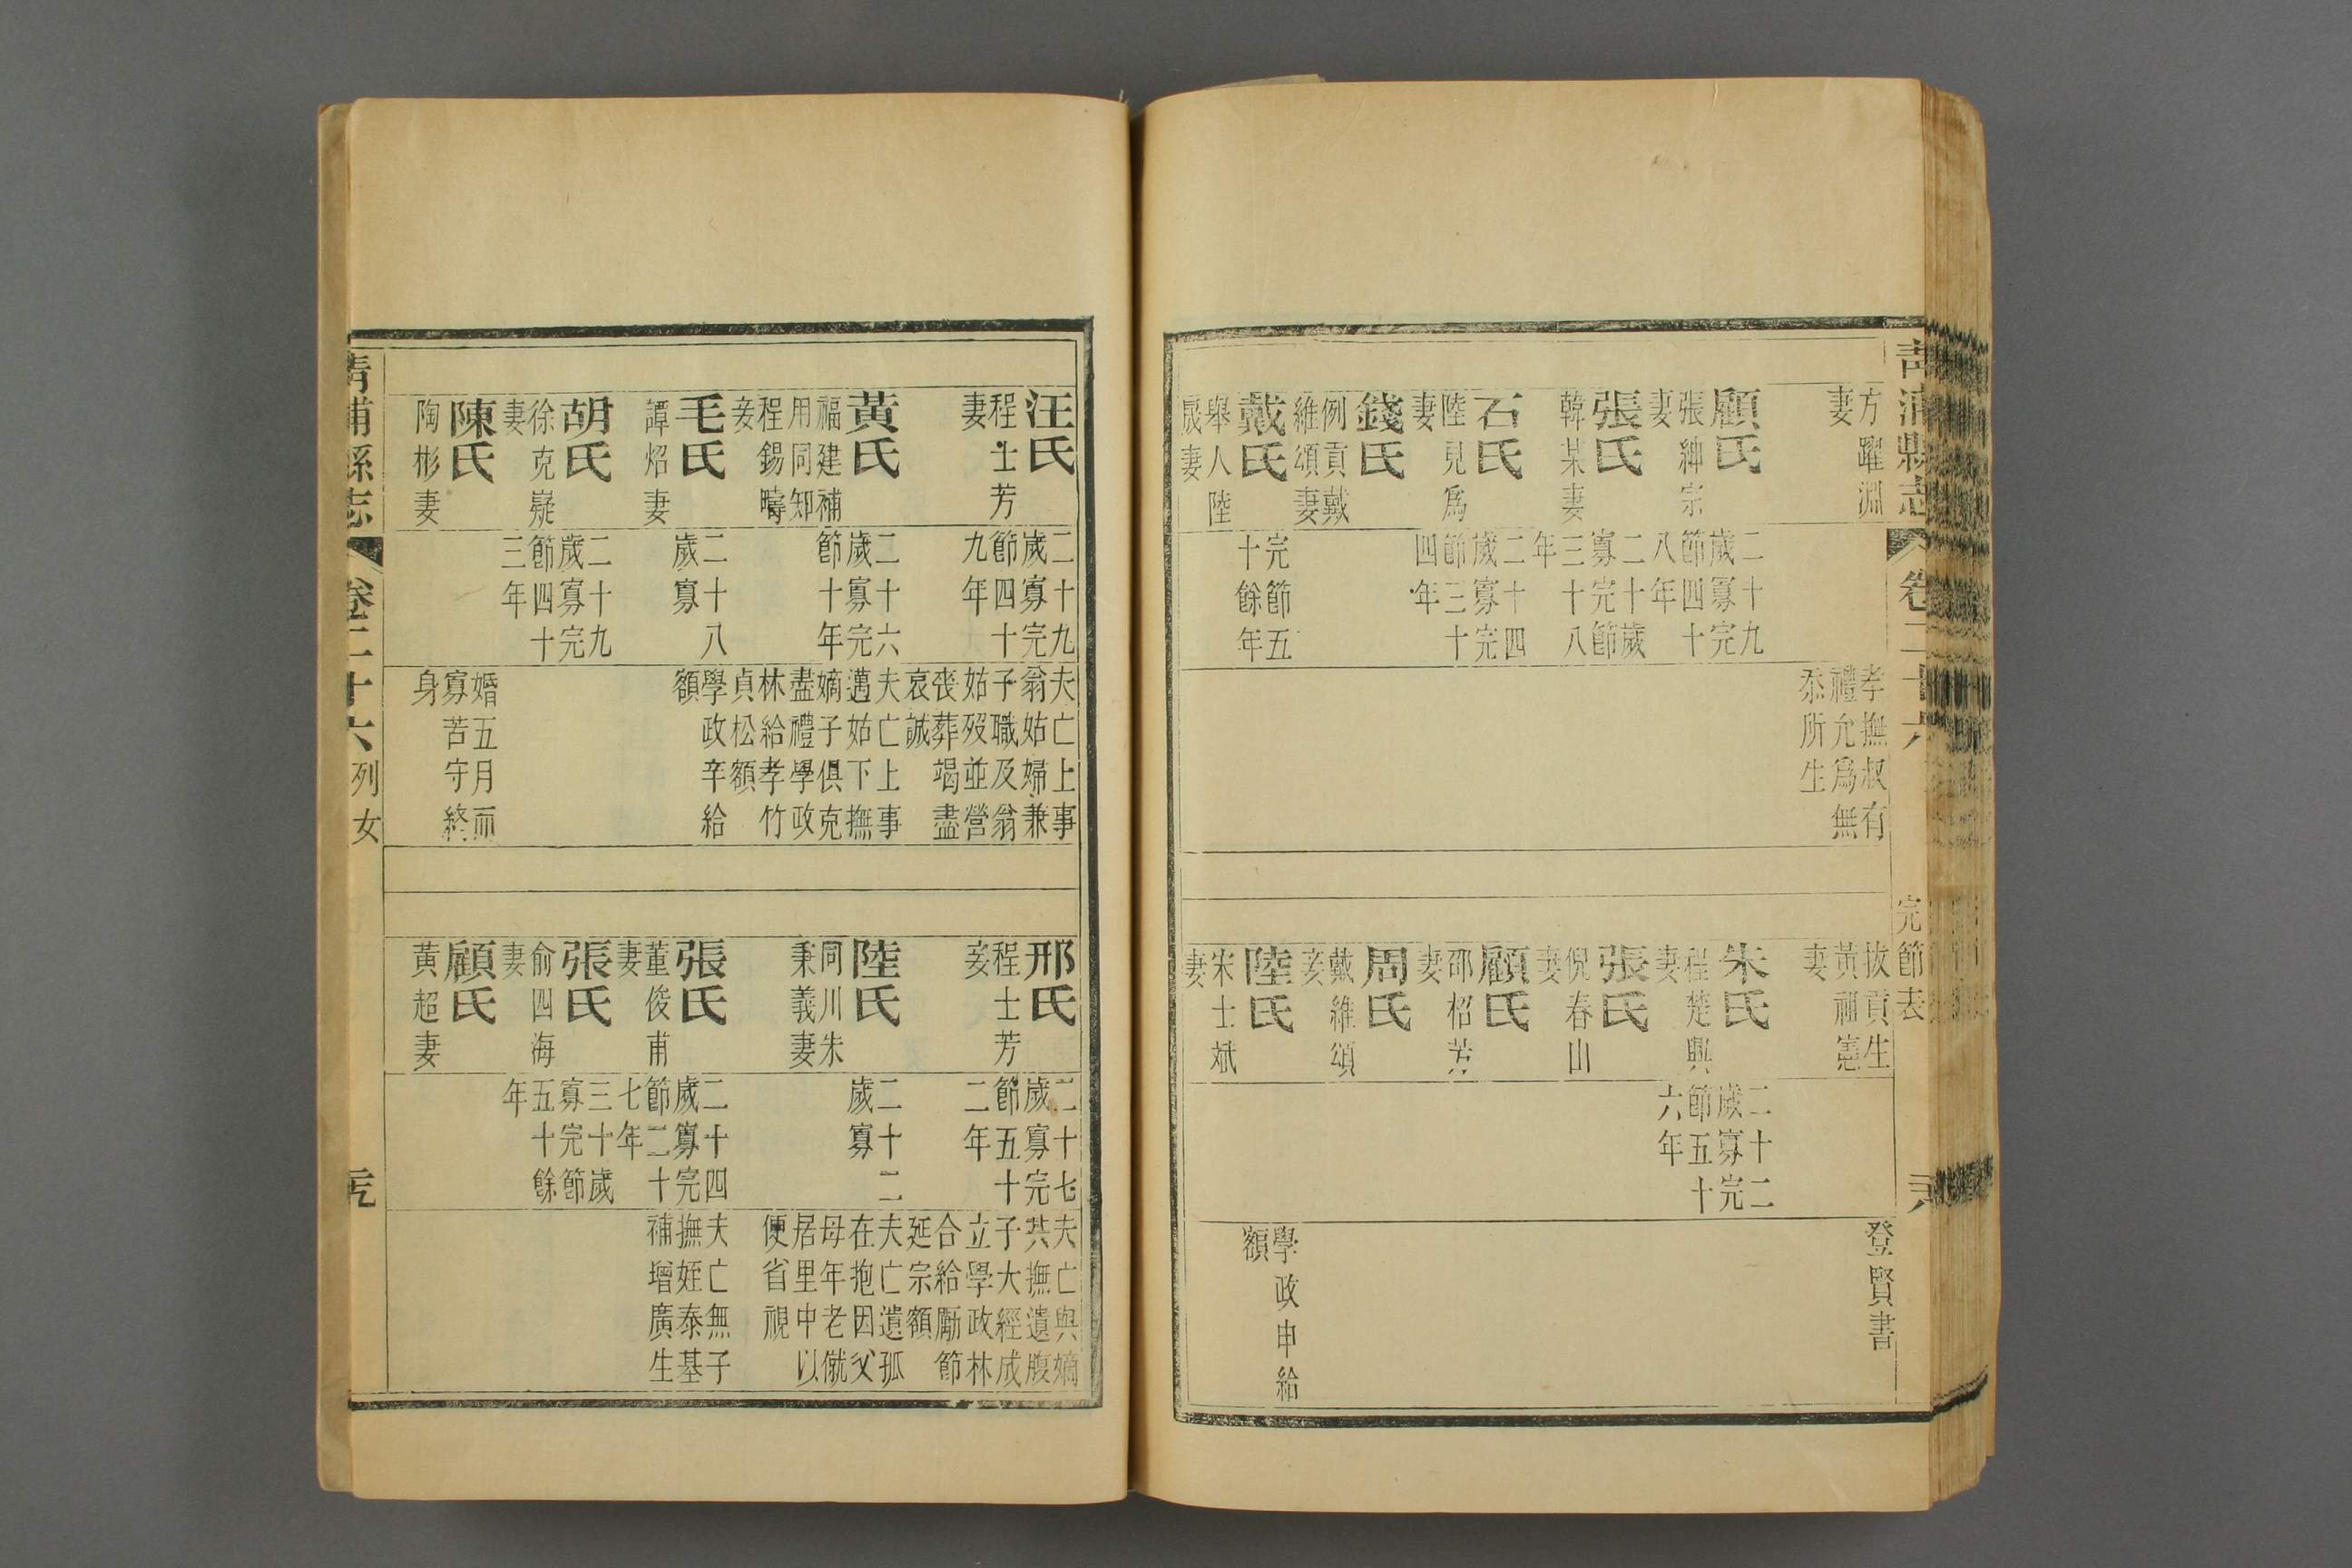 青浦縣志
卷二十六
完節表
方躍淵
妻
孝撫叔有
禮允爲無
忝所生
顧氏
張紳宗
妻
二十九
歲寡完
節四十
八年
張氏
韓某妻
二十歲
寡完節
三十八
年
石氏
陸見爲
妻
二十四
歲寡完
節三十
四年
錢氏
例貢戴
維頌妻
戴氏
舉人陸
晟妻
完節五
十餘年
拔貢生
黃祖憲
妻
登賢書
朱氏
程楚興
妻
二十二
歲寡完
節五十
六年
張氏
倪春山
妻
顧氏
邵柖
妻
周氏
戴維頌
妾
陸氏
宋士斌
妻
學政申給
額
汪氏
程士芳
妻
二十九
歲寡完
節四十
九年
夫亡上事
翁姑婦兼
子職及翁
姑歿並營
喪葬竭盡
哀誠
黃氏
福建補
用同知
程錫疇
妾
二十六
歲寡完
節十年
夫亡上事
邁姑下撫
嫡子俱克
盡禮學政
林給孝竹
貞松額
毛氏
譚炤妻
二十八
歲寡
學政辛給
額
胡氏
徐克嶷
妻
二十九
歲寡完
節四十
三年
陳氏
陶彬妻
婚五月而
寡苦守終
身
邢氏
程士芳
妾
二十七
歲寡完
節五十
二年
夫亡與嫡
共撫遺腹
子大經成
立學政林
合給勵節
延宗額
陸氏
同川朱
秉義妻
二十二
歲寡
夫亡遺孤
在抱因父
母年老僦
居里中以
便省視
張氏
董俊甫
妻
二十四
歲寡完
節二十
七年
夫亡無子
撫姪泰基
補增廣生
張氏
俞四海
妻
三十歲
寡完節
五十餘
年
顧氏
黃超妻
青浦縣志
卷二十六
列女